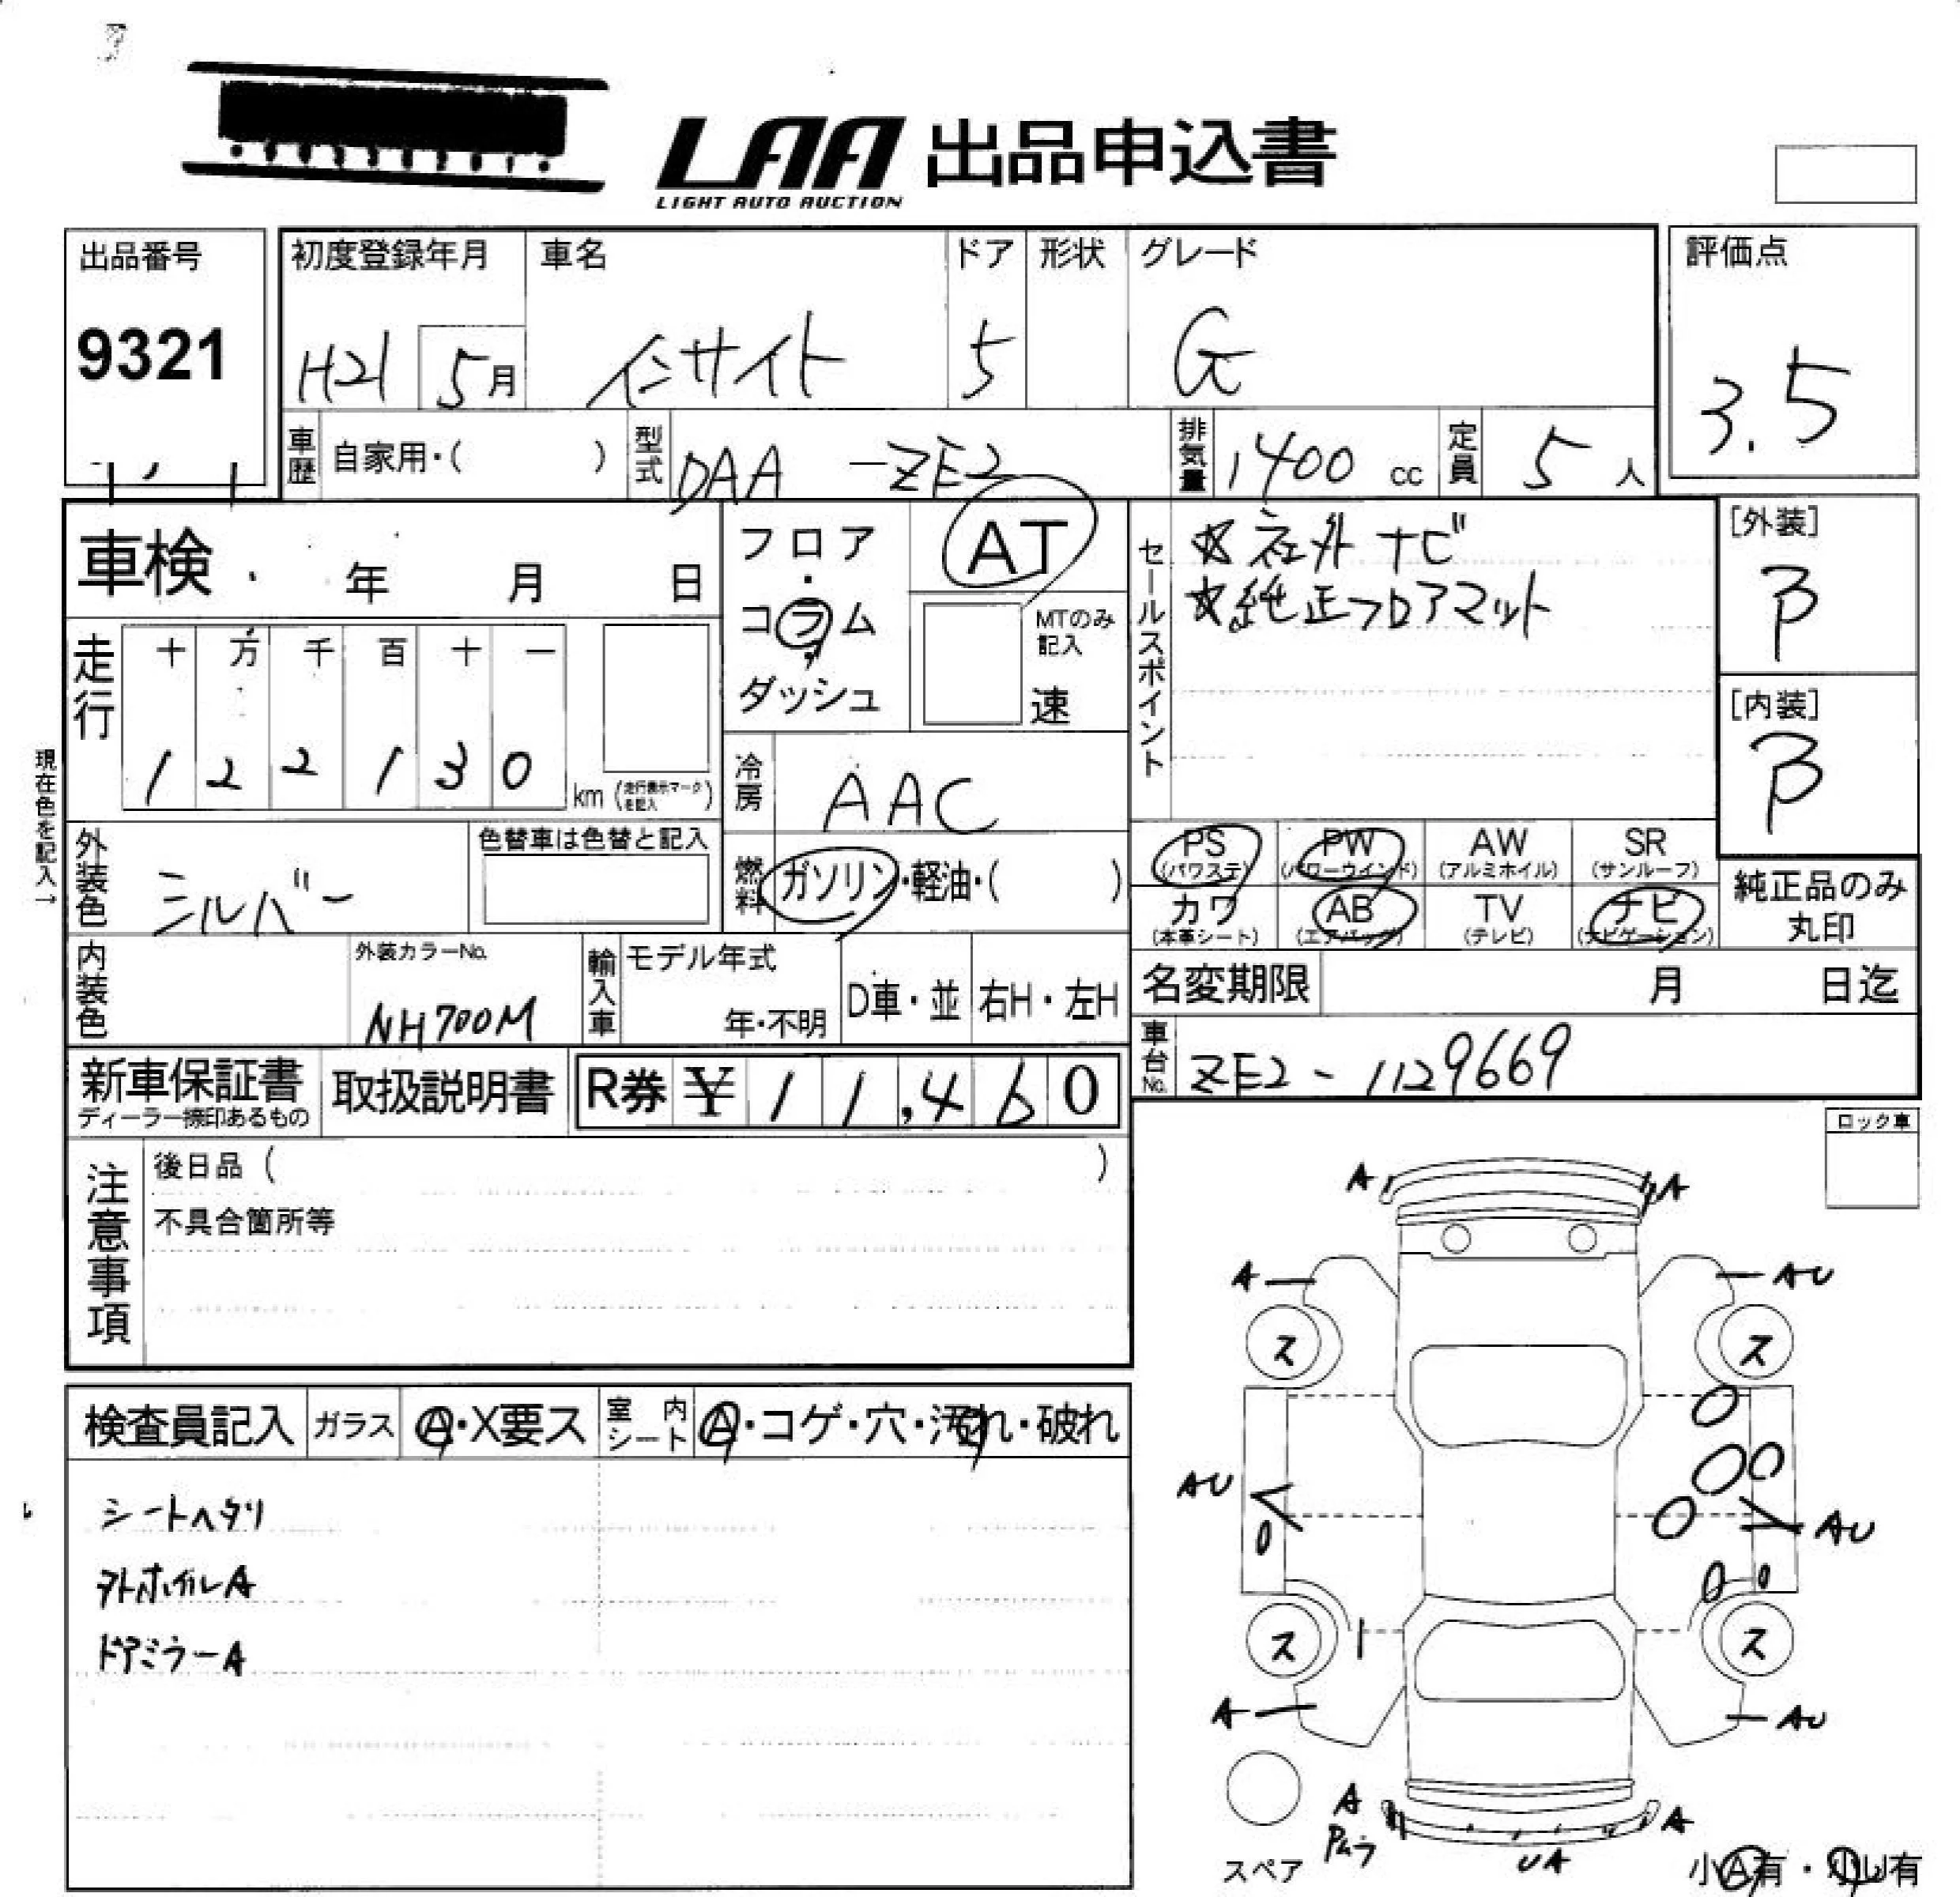 LAA 出品申込書
LIGHT AUTO AUCTION
出品番号
9321
初度登録年月
H21 5月
車名
インサイト
ドア
5
形状
グレード
G
評価点
3.5
車歴 自家用・( )
型式 DAA -ZE2
排気量 1400 cc
定員 5 人
車検 年 月 日
フロア・コラム・ダッシュ
AT
MTのみ記入
速
セールスポイント
☆社外ナビ
☆純正フロアマット
[外装]
B
[内装]
B
走行
十 万 千 百 十 一
1 2 2 1 3 0 km (走行表示マークを記入)
現在色を記入→
冷房 AAC
外装色 シルバー
色替車は色替と記入
燃料 ガソリン・軽油・( )
PS (パワステ)
PW (パワーウインド)
AW (アルミホイル)
SR (サンルーフ)
カワ (本革シート)
AB (エアバッグ)
TV (テレビ)
ナビ (ナビゲーション)
純正品のみ丸印
内装色
外装カラーNo.
NH700M
輸入車
モデル年式
年・不明
D車・並
右H・左H
名変期限 月 日迄
車台No. ZE2-1129669
新車保証書
ディーラー捺印あるもの
取扱説明書
R券 ¥11,460
ロック車
注意事項
後日品 ( )
不具合箇所等
検査員記入
ガラス A・X要ス
室内シート A・コゲ・穴・汚れ・破れ
シートヘタリ
外ホイルA
ドアミラーA
A A
A AU
ス ス
AU AU
ス ス
A AU
A A
UA
スペア
小A有・小U有